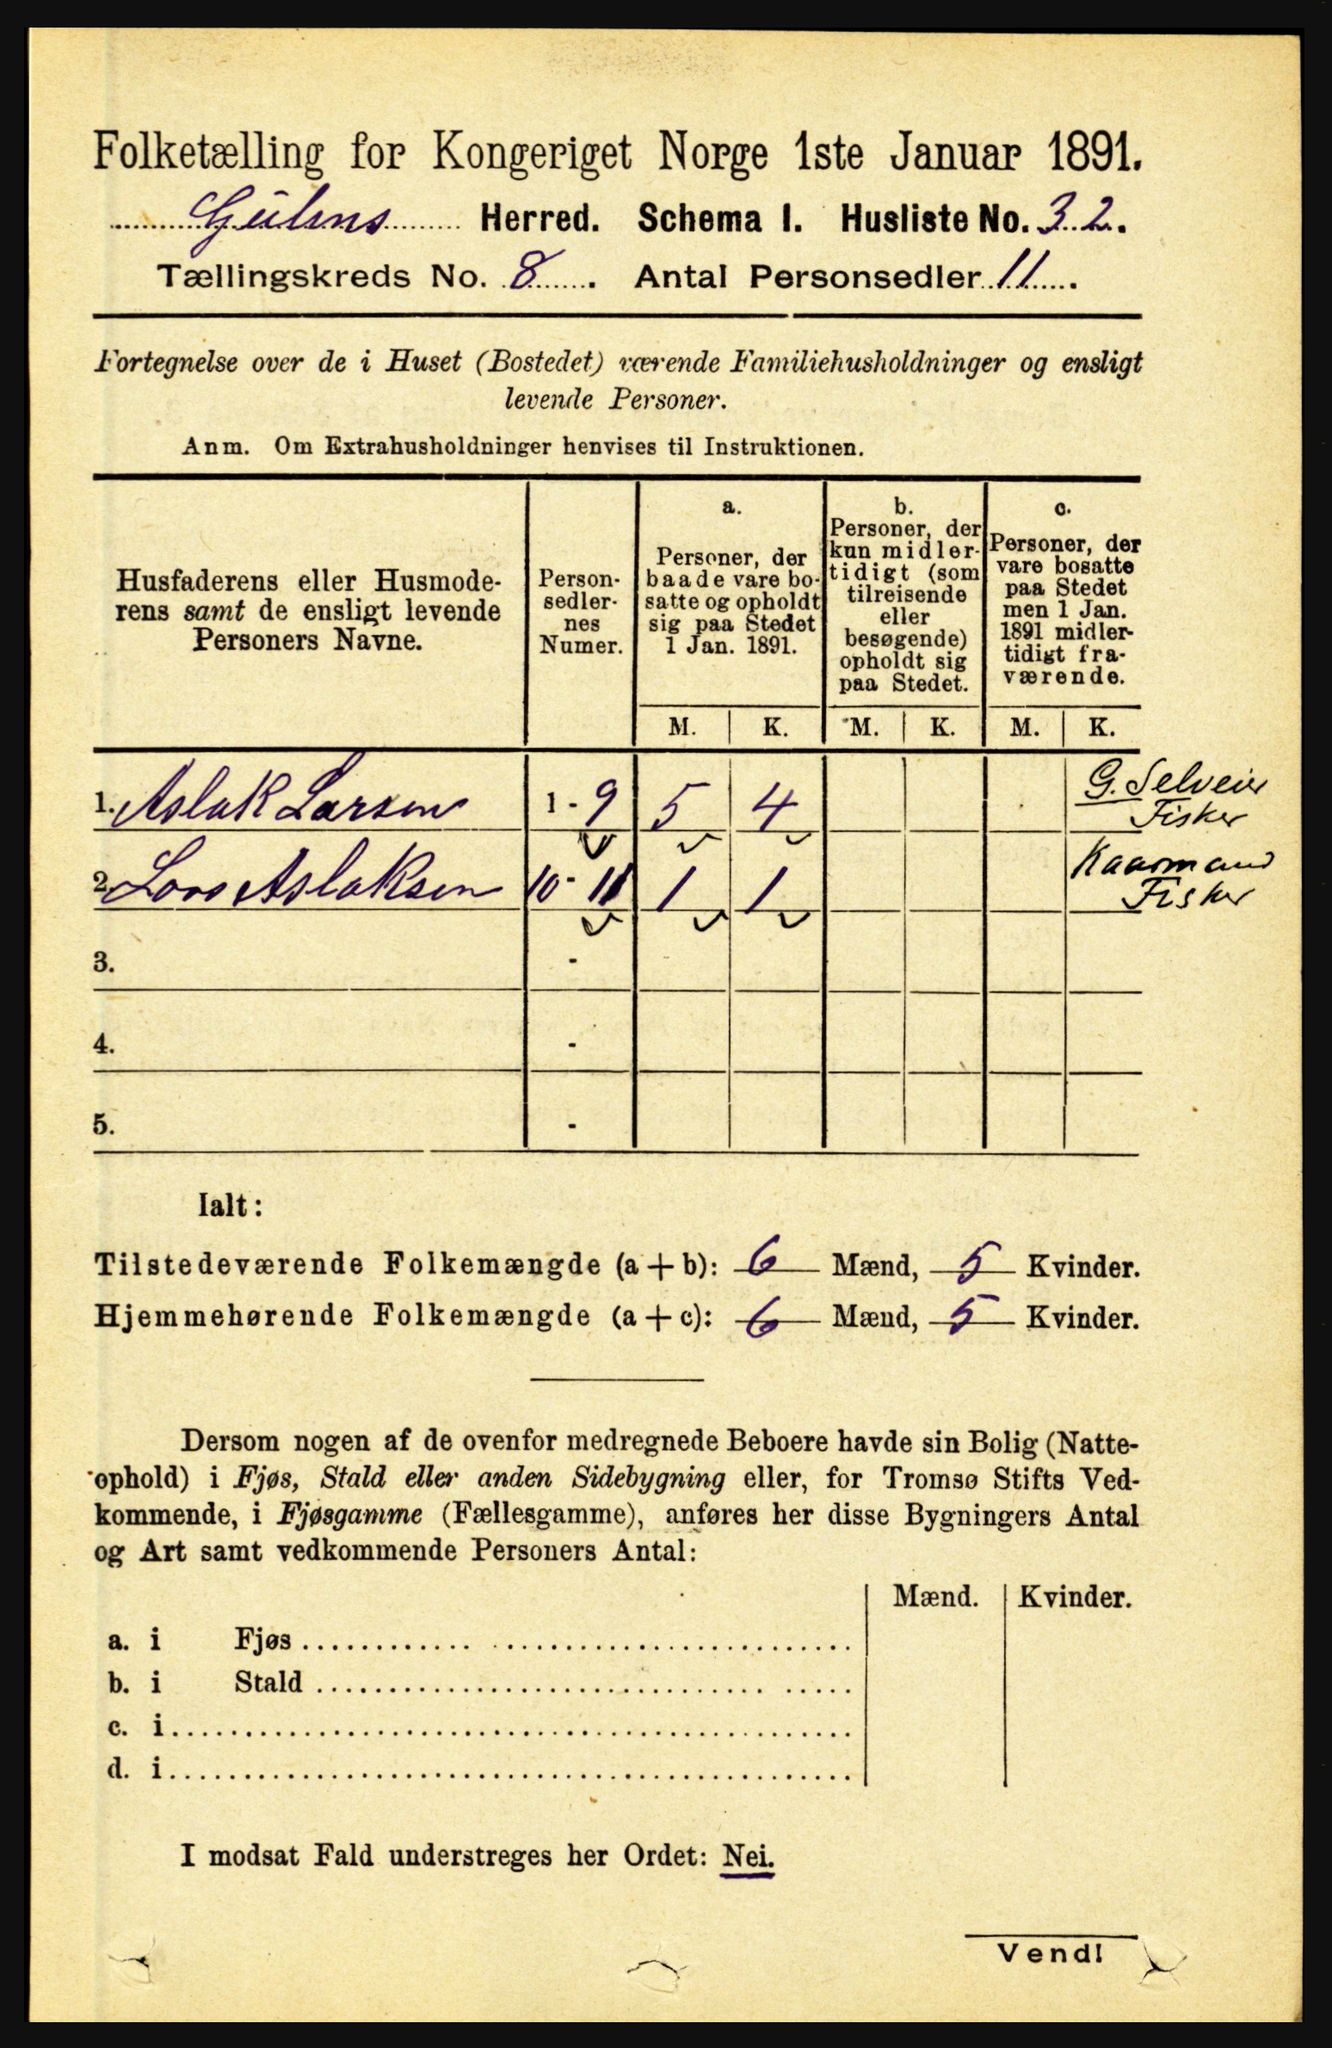 Folketælling for Kongeriget Norge 1ste Januar 1891.
Gulens Herred. Schema I. Husliste No. 32.
Tællingskreds No. 8. Antal Personsedler 11.
Fortegnelse over de i Huset (Bostedet) værende Familiehusholdninger og ensligt
levende Personer.
Anm. Om Extrahusholdninger henvises til Instruktionen.
Husfaderens eller Husmode-
rens samt de ensligt levende
Personers Navne.
Person-
sedler-
nes
Numer.
a.
Personer, der
baade vare bo-
satte og opholdt
sig paa Stedet
1 Jan. 1891.
b.
Personer, der
kun midler-
tidigt (som
tilreisende
eller
besøgende)
opholdt sig
paa Stedet.
c.
Personer, der
vare bosatte
paa Stedet
men 1 Jan.
1891 midler-
tidigt fra-
værende.
M. K. M. K. M. K.
1. Aslak Larsen 1 - 9 5 4 G. Selveier
Fisker
2. Lars Aslaksen 10 - 11 1 1 Kaarmand
Fisker
3. -
4. -
5. -
Ialt:
Tilstedeværende Folkemængde (a+b): 6 Mænd, 5 Kvinder.
Hjemmehørende Folkemængde (a+c): 6 Mænd, 5 Kvinder.
Dersom nogen af de ovenfor medregnede Beboere havde sin Bolig (Natte-
ophold) i Fjøs, Stald eller anden Sidebygning eller, for Tromsø Stifts Ved-
kommende, i Fjøsgamme (Fællesgamme), anføres her disse Bygningers Antal
og Art samt vedkommende Personers Antal:
Mænd. Kvinder.
a. i Fjøs
b. i Stald
c. i
d. i
I modsat Fald understreges her Ordet: Nei.
Vend!